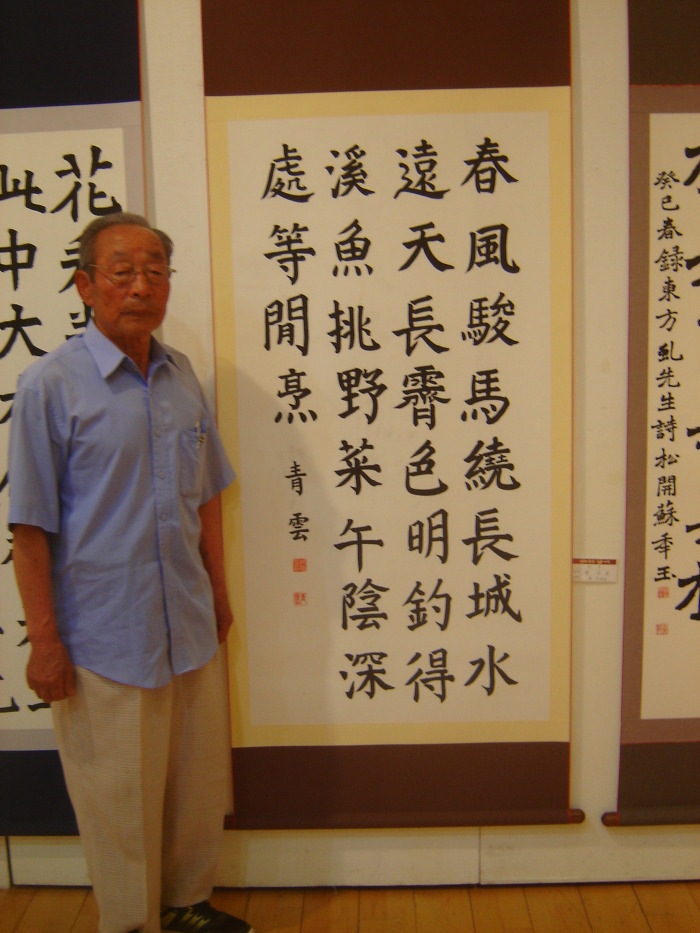 癸巳春録東方虬先生詩松開蘇秊
春風駿馬繞長城水
遠天長霽色明釣得
溪魚挑野菜午陰深
處等閒烹
青雲
花
此中大